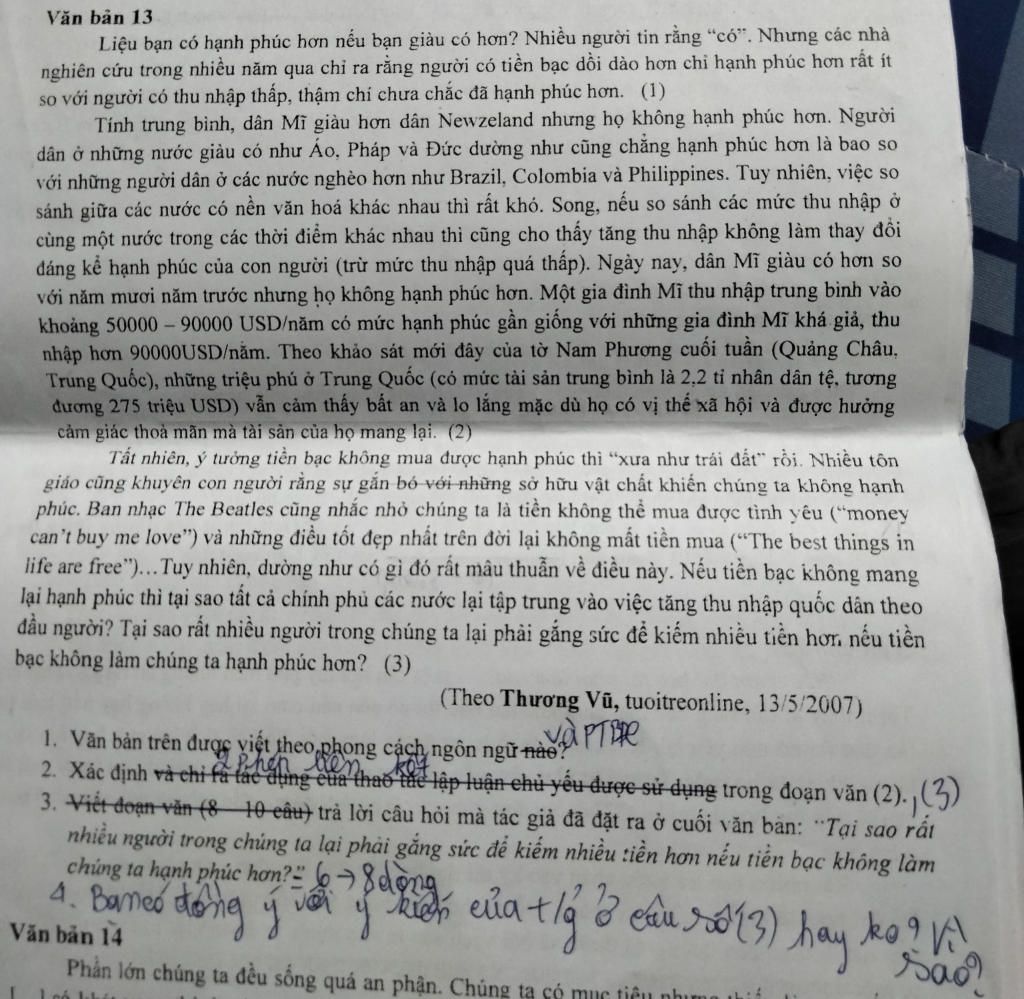 Văn bản 13
Liệu bạn có hạnh phúc hơn nếu bạn giàu có hơn? Nhiều người tin rằng “có”. Nhưng các nhà
nghiên cứu trong nhiều năm qua chỉ ra rằng người có tiền bạc dồi dào hơn chỉ hạnh phúc hơn rất ít
so với người có thu nhập thấp, thậm chí chưa chắc đã hạnh phúc hơn. (1)
Tính trung bình, dân Mĩ giàu hơn dân Newzeland nhưng họ không hạnh phúc hơn. Người
dân ở những nước giàu có như Áo, Pháp và Đức dường như cũng chẳng hạnh phúc hơn là bao so
với những người dân ở các nước nghèo hơn như Brazil, Colombia và Philippines. Tuy nhiên, việc so
sánh giữa các nước có nền văn hoá khác nhau thì rất khó. Song, nếu so sánh các mức thu nhập ở
cùng một nước trong các thời điểm khác nhau thì cũng cho thấy tăng thu nhập không làm thay đổi
đáng kể hạnh phúc của con người (trừ mức thu nhập quá thấp). Ngày nay, dân Mĩ giàu có hơn so
với năm mươi năm trước nhưng họ không hạnh phúc hơn. Một gia đình Mĩ thu nhập trung bình vào
khoảng 50000 – 90000 USD/năm có mức hạnh phúc gần giống với những gia đình Mĩ khá giả, thu
nhập hơn 90000USD/năm. Theo khảo sát mới đây của tờ Nam Phương cuối tuần (Quảng Châu,
Trung Quốc), những triệu phú ở Trung Quốc (có mức tài sản trung bình là 2,2 tỉ nhân dân tệ, tương
đương 275 triệu USD) vẫn cảm thấy bất an và lo lắng mặc dù họ có vị thế xã hội và được hưởng
cảm giác thoả mãn mà tài sản của họ mang lại. (2)
Tất nhiên, ý tưởng tiền bạc không mua được hạnh phúc thì “xưa như trái đất” rồi. Nhiều tôn
giáo cũng khuyên con người rằng sự gắn bó với những sở hữu vật chất khiến chúng ta không hạnh
phúc. Ban nhạc The Beatles cũng nhắc nhở chúng ta là tiền không thể mua được tình yêu (“money
can’t buy me love”) và những điều tốt đẹp nhất trên đời lại không mất tiền mua (“The best things in
life are free”)…Tuy nhiên, dường như có gì đó rất mâu thuẫn về điều này. Nếu tiền bạc không mang
lại hạnh phúc thì tại sao tất cả chính phủ các nước lại tập trung vào việc tăng thu nhập quốc dân theo
đầu người? Tại sao rất nhiều người trong chúng ta lại phải gắng sức để kiếm nhiều tiền hơn nếu tiền
bạc không làm chúng ta hạnh phúc hơn? (3)
(Theo Thương Vũ, tuoitreonline, 13/5/2007)
và PTBĐ
1. Văn bản trên được viết theo phong cách ngôn ngữ nào?
2 phép liên kết
2. Xác định và chỉ ra tác dụng của thao tác lập luận chủ yếu được sử dụng trong đoạn văn (2). , (3)
3. Viết đoạn văn (8 – 10 câu) trả lời câu hỏi mà tác giả đã đặt ra ở cuối văn bản: “Tại sao rất
nhiều người trong chúng ta lại phải gắng sức để kiếm nhiều tiền hơn nếu tiền bạc không làm
chúng ta hạnh phúc hơn?” 6 → 8 dòng
4. Bạn có đồng ý với ý kiến của t/g ở câu số (3) hay ko? Vì
sao?
Văn bản 14
Phần lớn chúng ta đều sống quá an phận. Chúng ta có mục tiêu nhưng